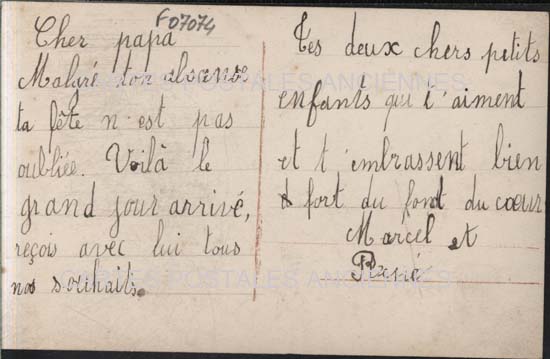 F07074
Cher papa
Malgré ton absence
ta fête n'est pas
oubliée. Voilà le
grand jour arrivé,
reçois avec lui tous
nos souhaits.
Tes deux chers petits
enfants qui t'aiment
et t'embrassent bien
fort du font du coeur
Marcel et
CARTES POSTALES ANCIENNES
CARTES POSTALES ANCIENNES